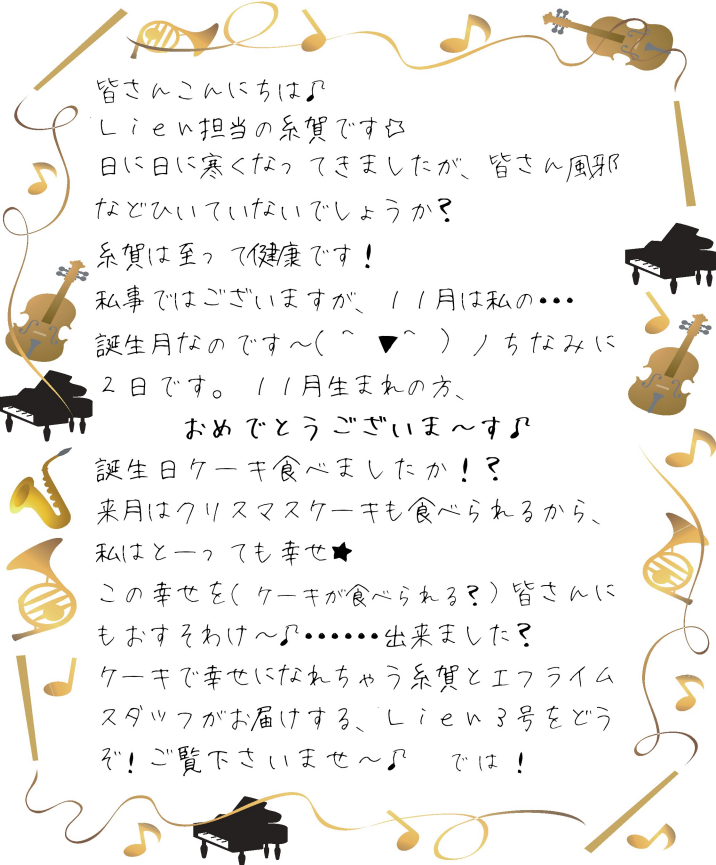 皆さんこんにちは♪
Lien担当の糸賀です☆
日に日に寒くなってきましたが、皆さん風邪
などひいていないでしょうか?
糸賀は至って健康です!
私事ではございますが、11月は私の・・・
誕生月なのです～(＾▼＾)ノちなみに
2日です。11月生まれの方、
おめでとうございま～す♪
誕生日ケーキ食べましたか!?
来月はクリスマスケーキも食べられるから、
私はとーっても幸せ★
この幸せを(ケーキが食べられる?)皆さんに
もおすそわけ～♪・・・・・・出来ました?
ケーキで幸せになれちゃう糸賀とエフライム
スタッフがお届けする、Lien3号をどう
ぞ!ご覧下さいませ～♪ では!